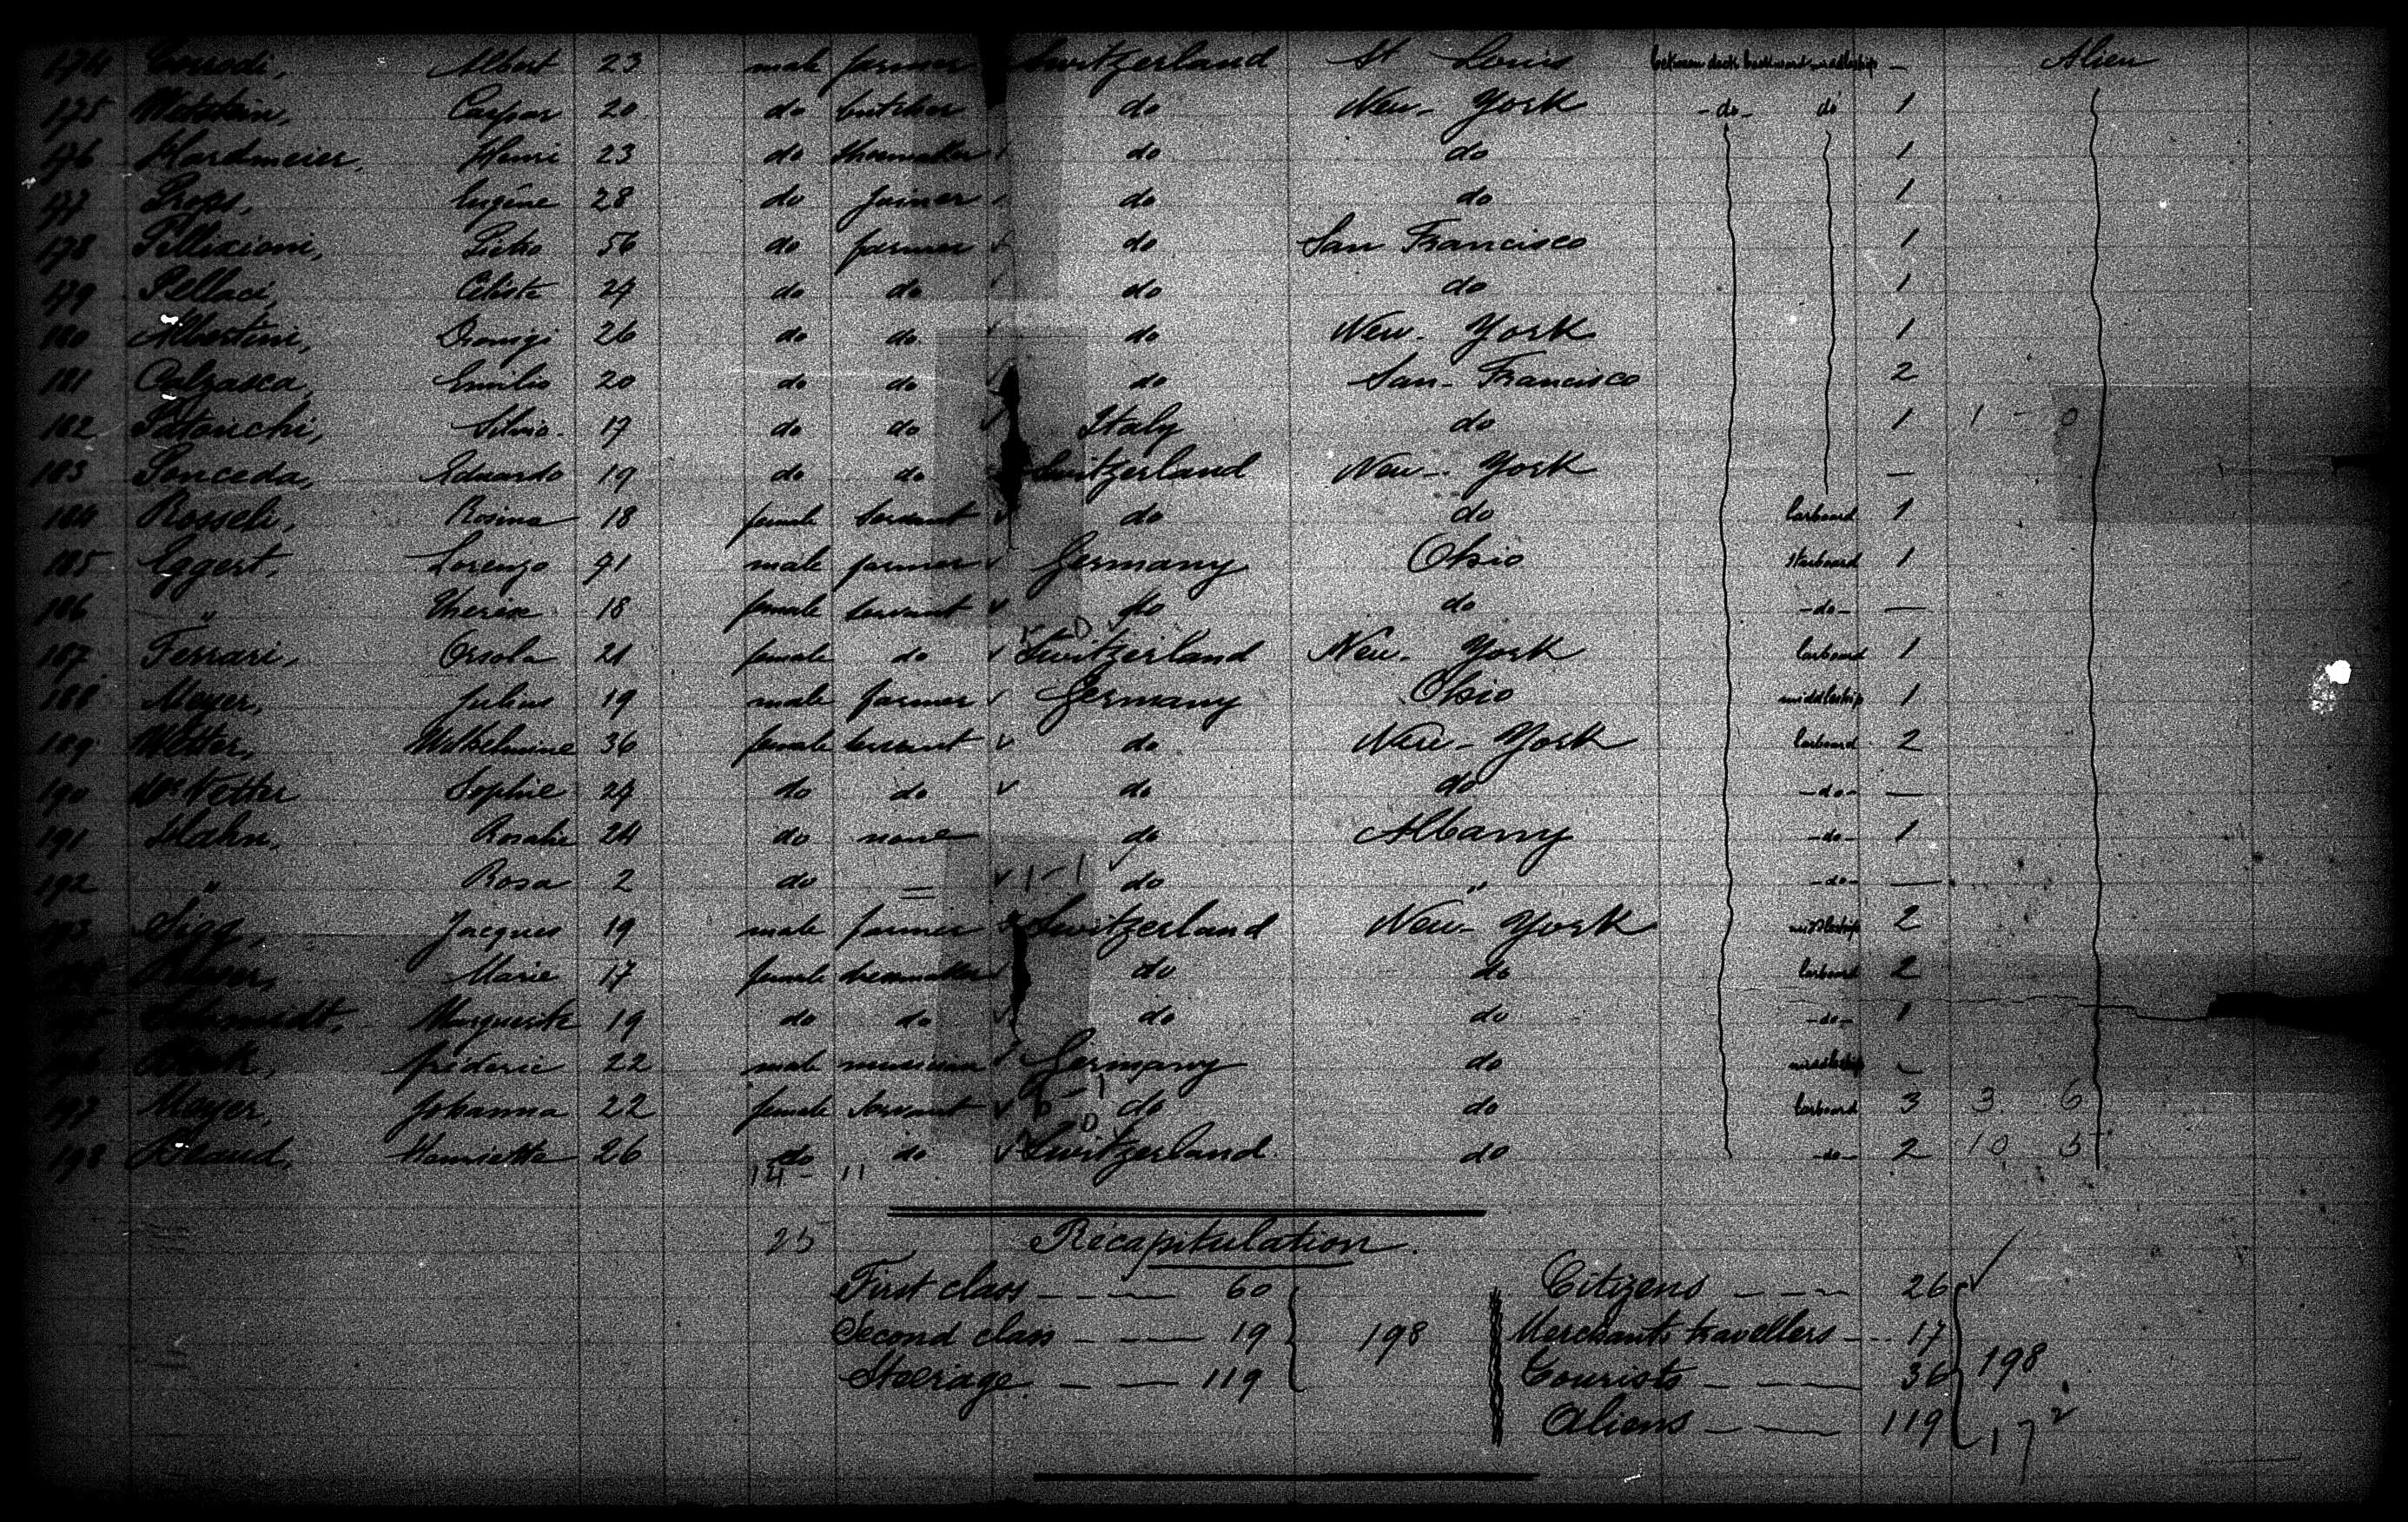 174 Corrodi, Albert 23 male farmer Switzerland St Louis between deck backward middleship - Alien
175 Caspar 20 do butcher do New-York -do- do 1
176 Hardmeier, Henri 23 do shoemaker do do 1
177 Eugène 28 do joiner do do 1
178 Pellicioni, Pietro 56 do farmer do San Francisco 1
179 Pellaci, Céleste 24 do do do do 1
180 Albertini, 26 do do do New-York 1
181 Calzasca, Emilio 20 do do do San-Francisco 2
182 Silvio 17 do do Italy do 1 1 - 0
183 Sonceda, Eduardo 19 do do Switzerland New-York -
184 Rosseli, Rosina 18 female servant do do larboard 1
185 Eggert, Lorenzo male farmer Germany Ohio starboard 1
186 " Thérèse 18 female servant do do -do- —
187 Ferrari, Orsola 21 female do Switzerland New-York larboard 1
188 Meyer, Julius 19 male farmer Germany Ohio middleship 1
189 Wetter, Wilhelmine 36 female servant do New-York larboard 2
190 Vetter Sophie 24 do do do do -do- —
191 Hahn, Rosalie 24 do none do Albany -do- 1
192 " Rosa 2 do = 1-1 do " -do- —
193 Sigg, Jacques 19 male farmer Switzerland New-York middleship 2
Marie 17 female dressmaker do do larboard 2
Schmidt, Marguerite 19 do do do do -do- 1
196 Fréderic 22 male musician Germany do middleship -
197 Meyer, Johanna 22 female servant do do larboard 3 3 6
198 Beaud, Henriette 26 do do Switzerland do -do- 2 10 5
14 - 11
25 Récapitulation.
First class — 60 Citizens — 26
Second class — 19 198 Merchants travellers — 17
Steerage — 119 Tourists — 36 198
Aliens — 119 172